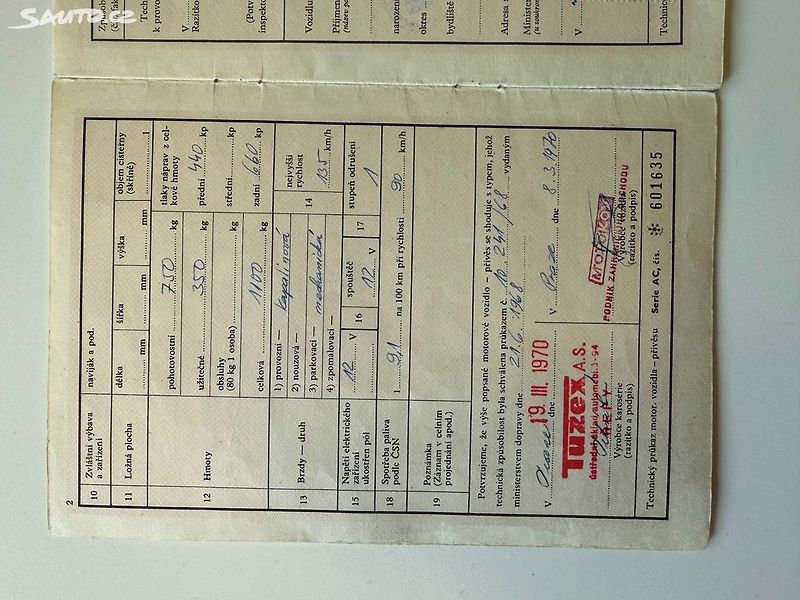 SAUTO.CZ
2
10 Zvláštní výbava a zařízení
naviják a pod.
11 Ložná plocha
délka mm
šířka mm
výška mm
objem cisterny (skříně) 1
12 Hmoty
pohotovostní 750 kg
užitečné 350 kg
obsluhy (80 kg 1 osoba)
celková 1100 kg
tlaky náprav z celkové hmoty
přední 440 kp
střední kp
zadní 660 kp
13 Brzdy — druh
1) provozní — kapalinová
2) nouzová —
3) parkovací — mechanická
4) zpomalovací —
14 nejvyšší rychlost 135 km/h
15 Napětí elektrického zařízení ukostřen pól
12 V
16 spouštěč 12 V
17 stupeň odrušení 1
18 Spotřeba paliva podle ČSN
1 9,1 na 100 km při rychlosti 90 km/h
19 Poznámka (Záznam v celním projednání apod.)
Potvrzujeme, že výše popsané motorové vozidlo – přívěs se shoduje s typem, jehož
technická způsobilost byla schválena průkazem č. 10 241/68 vydaným
ministerstvem dopravy dne 21.6.1968
V dne 19. III. 1970
V Praze dne 8.3.1970
Tuzex A.S.
MOTOKOV
PODNIK ZAHRANIČNÍHO OBCHODU
Výrobce karosérie
(razítko a podpis)
Výrobce vozidla
(razítko a podpis)
Technický průkaz motor. vozidla – přívěsu Serie AC, čís. ✻ 601635